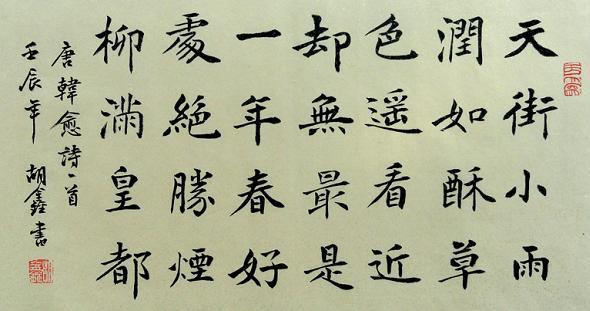 天街小雨
潤如酥草
色遥看近
却無最是
一年春好
處絕勝煙
柳滿皇都
唐韓愈詩一首
壬辰年 胡鑫書